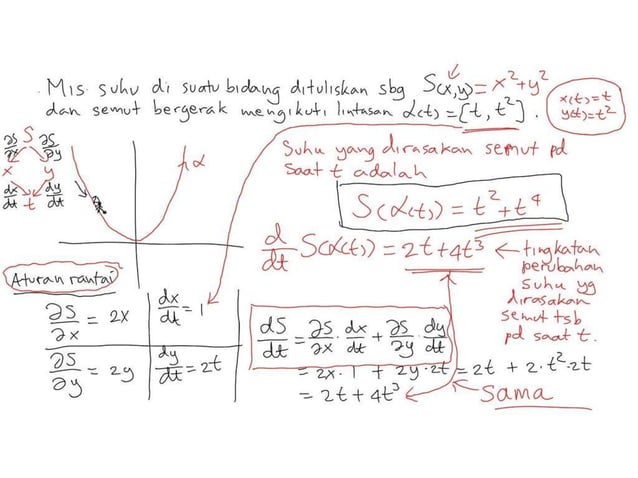 . Mis. suhu di suatu bidang dituliskan sbg S(x,y) = x² + y²
dan semut bergerak mengikuti lintasan α(t) = [t, t²].
x(t) = t
y(t) = t²
S
∂S/∂x ∂S/∂y
x y
dx/dt t dy/dt
α
Suhu yang dirasakan semut pd
saat t adalah
S(α(t)) = t² + t⁴
d/dt S(α(t)) = 2t + 4t³ ← tingkatan
perubahan
suhu yg
dirasakan
semut tsb
pd saat t.
Aturan rantai
∂S/∂x = 2x dx/dt = 1
∂S/∂y = 2y dy/dt = 2t
dS/dt = ∂S/∂x · dx/dt + ∂S/∂y · dy/dt
= 2x · 1 + 2y · 2t = 2t + 2 · t² · 2t
= 2t + 4t³
Sama